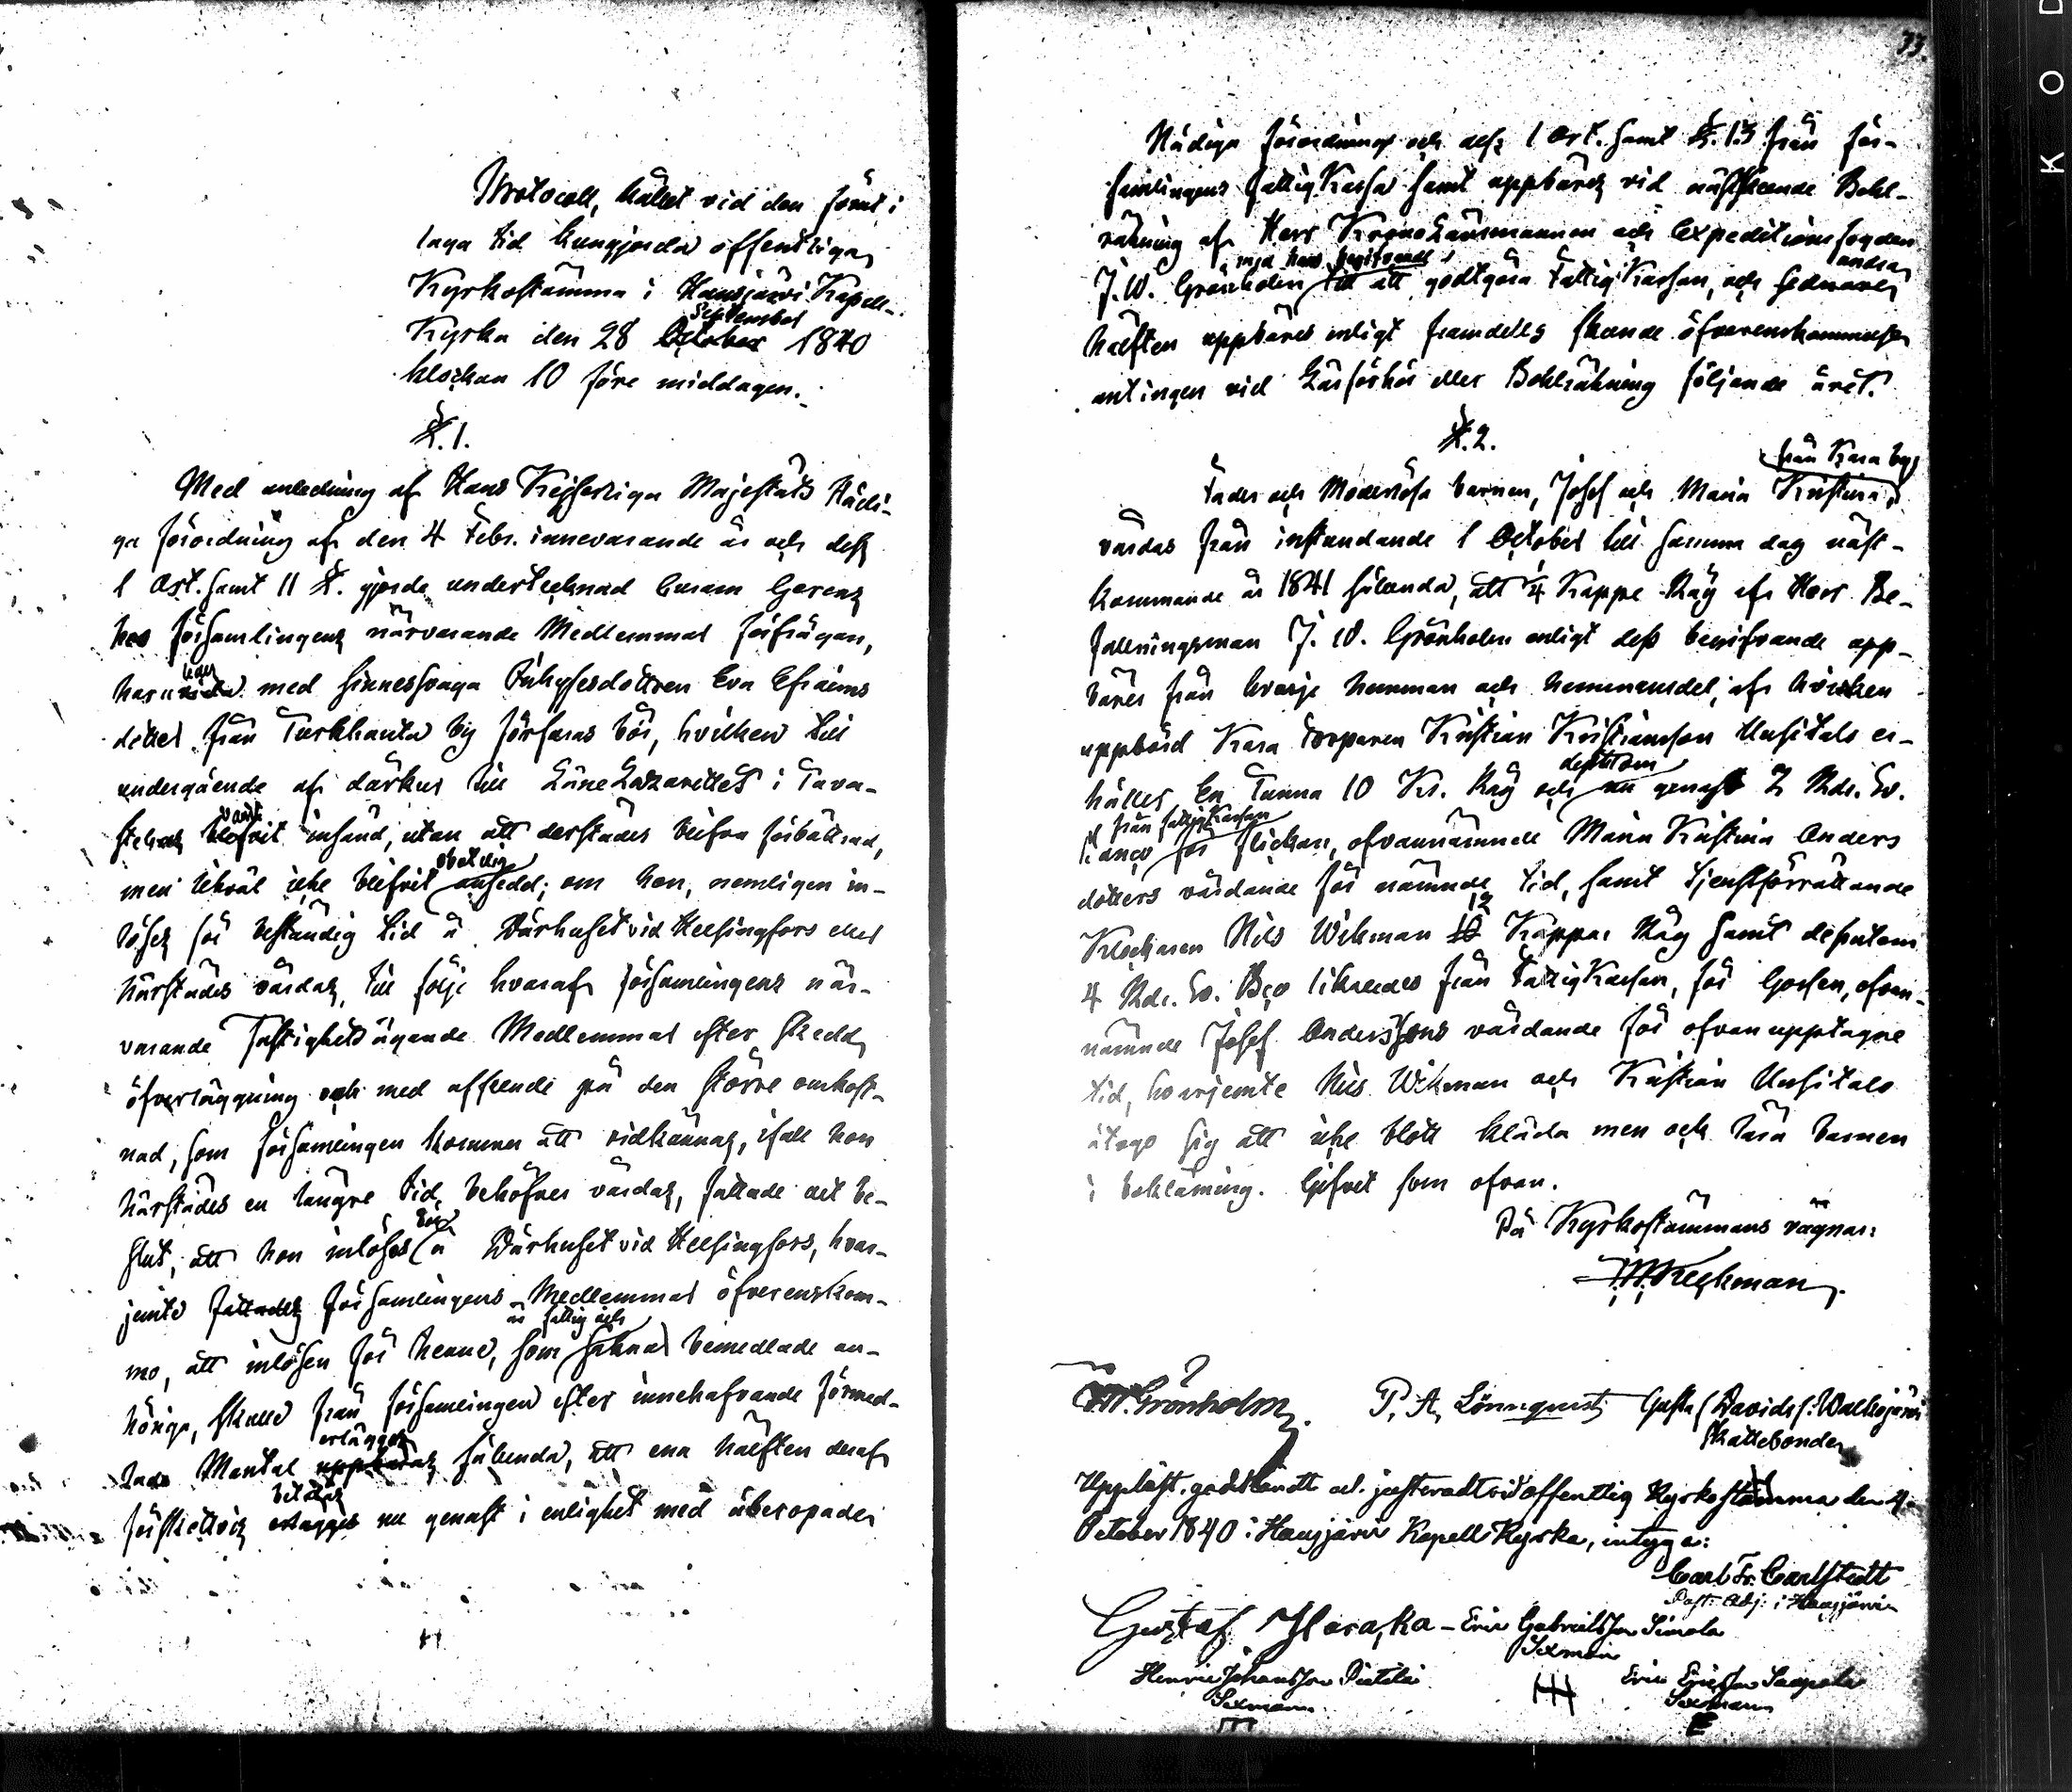 Protocoll, hållet vid den förut i
laga tid kungjorda offentliga
Kyrkostämma i Hausjärvi Kapell-
September
Kyrka den 28 October 1840
klockan 10 före middagen.
§. 1.
Med anledning af Hans Kejserliga Majestäts Nådi-
ga förordning af den 4 Febr. innevarande år och dess
1 Art. samt 11 §. gjorde undertecknad
hos församlingens närvarande Medlemmar förfrågan,
huru med sinnessvaga Inhysesdottren Eva Efraims
dotter från Turkhauta by förfaras bör, hvilken till
undergående af dårkur till Läne Lazarettet i Tava-
varit
stehus blefvit insänd, utan att derstädes blifva förbättrad,
obotelig
men likväl icke blifvit ansedd; om hon, nemligen in-
löses för beständig tid å Dårhuset vid Helsingfors eller
härstädes vårdas, till följe hvaraf församlingens när-
varande Fastighetsägande Medlemmar efter skedd
öfverläggning och med afseende på den större omkost-
nad, som församlingen kommer att vidkännas, ifall hon
härstädes en längre tid behöfver vårdas, fattade det be-
slut, att hon inlöses å Dårhuset vid Helsingfors, hvar-
jemte fattades församlingens Medlemmar öfverenskom-
är fattig och
mo, att inlösen för henne, som saknar bemedlade an-
höriga, skulle från församlingen efter innehafvande förmed-
erlägges
lade Mantal uppbäras sålunda, att ena hälften deraf
betalas
förskottvis erlägges nu genast i enlighet med åberopade
33.
Nådiga förordning och dess 1 Art. samt §. 13 från för-
samlingens fattig Kassa samt uppbäres vid nästskeende Bohl-
räkning af Herr Krono Länsmannen och Expeditionsfogden
med hans begifvande andra
J. W. Grönholm till att godtgöra Fattig Kassan, och sednare
hälften uppbäres enligt framdeles skeende öfverenskommelse
antingen vid Läsförhör eller Bohlräkning följande året.
§. 2.
från Kara by
Fader och Moderlösa barnen, Josef och Maria Kristina,
vårdas från instundande 1 October till samma dag näst-
kommande år 1841 sålunda, att 1/4 Kappe Råg af Herr Be-
fallningsman J. W. Grönholm enligt dess begifvande upp-
bäres från hvarje hemman och hemmansdel, af hvilken
uppbörd Kara Torparen Kristian Kristiansson Uusitalo er-
dessutom
håller En Tunna 10 Kr. Råg och nu genast 7 Rdr. Sv.
från fattig Kassan
Banco för flickan, ofvannämnde Maria Kristina Anders
dotters vårdande för nämnde tid, samt tjenstförrättande
12
Klockaren Nils Wikman 10 Kappar Råg samt dessutom
4 Rdr. Sv. Bco likaledes från Fattig Kassan, för Gossen, ofvan-
nämnde Josef Anderssons vårdande för ofvan upptagne
tid, hvarjemte Nils Wikman och Kristian Uusitalo
åtogo sig att icke blott kläda men och lära barnen
i boklärning. Gifvet som ofvan.
På Kyrkostämmans vägnar:
J. W. Grönholm. P. A. Lönnquist Gusta f Davids s: Walkojärvi
Skattebonde
Uppläst, godkändt och justeradt vid offentlig Kyrkostämma den 4
October 1840 i Hausjärvi Kapell Kyrka, intyga:
Carl Fr. Carlstedt
Past: Adj: i Hausjärvi
Gustaf Haraka - Eric Gabrielsson Simola
Sexman
Henric Johansson Pietilä Eric Ericsson Saapala
Sexman Sexman